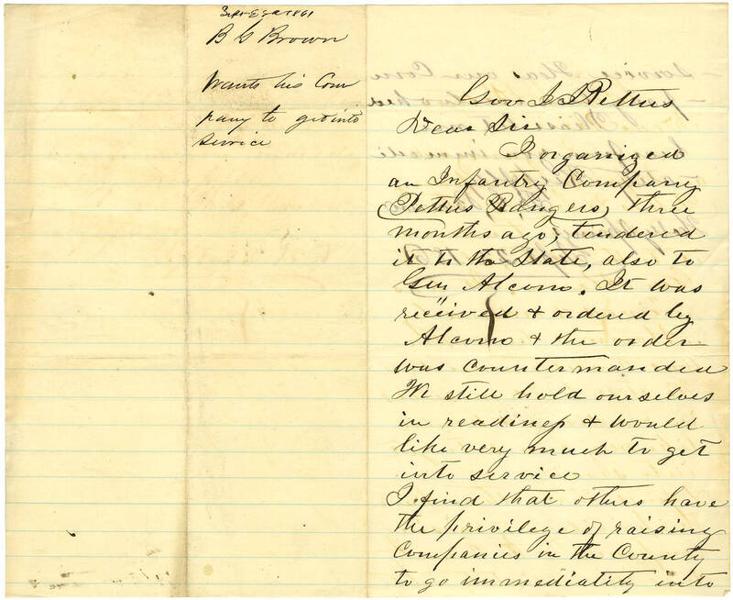 1861
B G Brown
Wants his Com
pany to get into
service
Gov J J Pettus
Dear Sir
I organized
an Infantry Company
(Pettus Rangers) three
months ago, tendered
it to the State, also to
Gen Alcorn. It was
received & ordered by
Alcorn & the order
was countermanded
We still hold ourselves
in readiness & would
like very much to get
into service
I find that others have
the privilege of raising
Companies in the County
to go immediately into